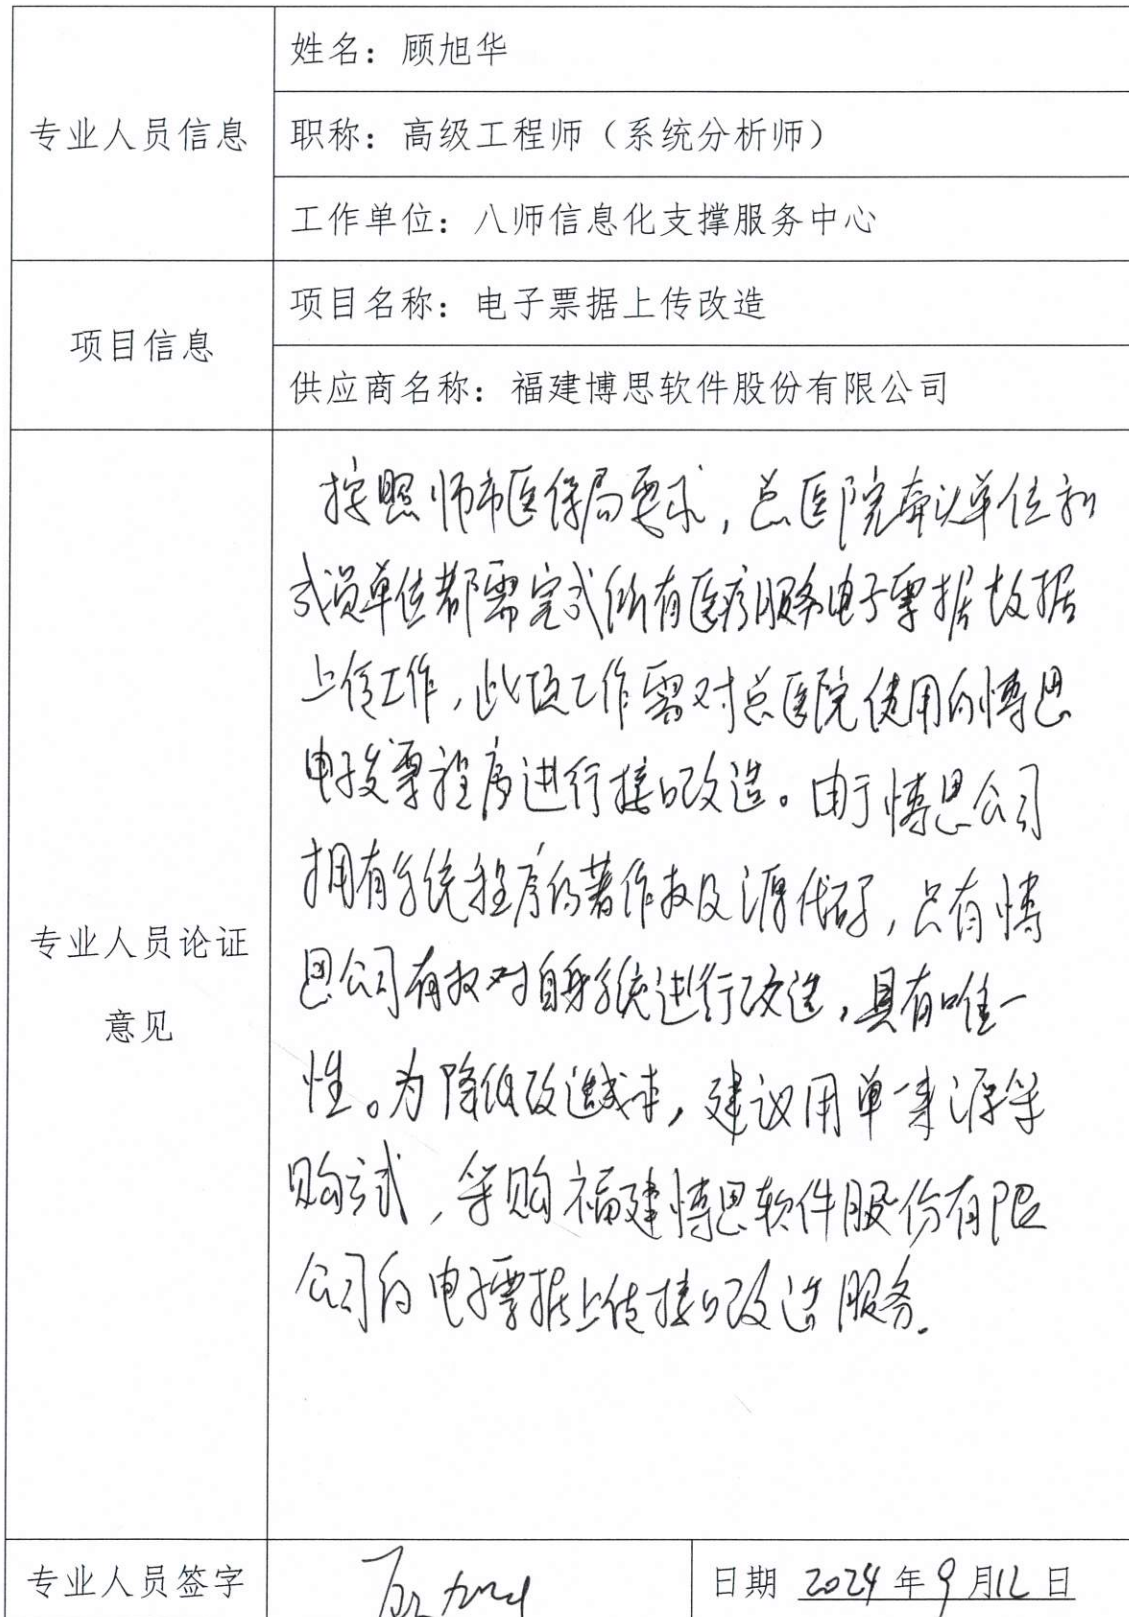 专业人员信息
姓名：顾旭华
职称：高级工程师（系统分析师）
工作单位：八师信息化支撑服务中心
项目信息
项目名称：电子票据上传改造
供应商名称：福建博思软件股份有限公司
专业人员论证
意见
按照师市医保局要求，总医院牵头单位和
成员单位都需完成所有医疗服务电子票据数据
上传工作，此项工作需对总医院使用的博思
电子发票程序进行接口改造。由于博思公司
拥有系统程序的著作权及源代码，只有博
思公司有权对自身系统进行改造，具有唯一
性。为降低改造成本，建议用单一来源采
购方式，采购福建博思软件股份有限
公司的电子票据上传接口改造服务.
专业人员签字
日期 2024年9月12日